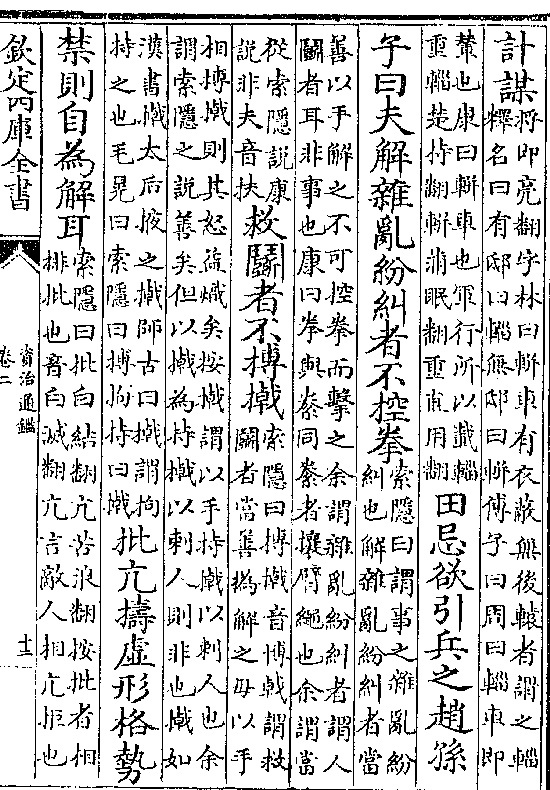 計謀
將即亮翻字林曰軿車有衣蔽無後轅者謂之輜
釋名曰有邸曰輜無邸曰軿傅子曰周曰輜車即
輦也康曰軿車也軍行所以載輜
重輜楚持翻軿蒲眠翻重直用翻
田忌欲引兵之趙孫
子曰夫解雜亂紛糾者不控拳
索隱曰謂事之雜亂紛
糾也解雜亂紛糾者當
善以手解之不可控拳而擊之余謂雜亂紛糾者謂人
鬬者耳非事也康曰拳與絭同絭者攘臂繩也余謂當
從索隱説康
説非夫音扶
救鬬者不搏撠
索隱曰搏撠音博戟謂救
鬬者當善撝解之毋以手
相搏撠則其怒益熾矣按撠謂以手持撠以刺人也余
謂索隱之説善矣但以撠為持撠以刺人則非也撠如
漢書撠太后掖之撠師古曰撠謂拘
持之也毛晃曰索隱曰搏拘持曰撠
批亢擣虛形格勢
禁則自為解耳
索隱曰批白結翻亢苦浪翻按批者相
排批也音白滅翻亢言敵人相亢拒也
欽定四庫全書
資治通鑑
卷二
十三